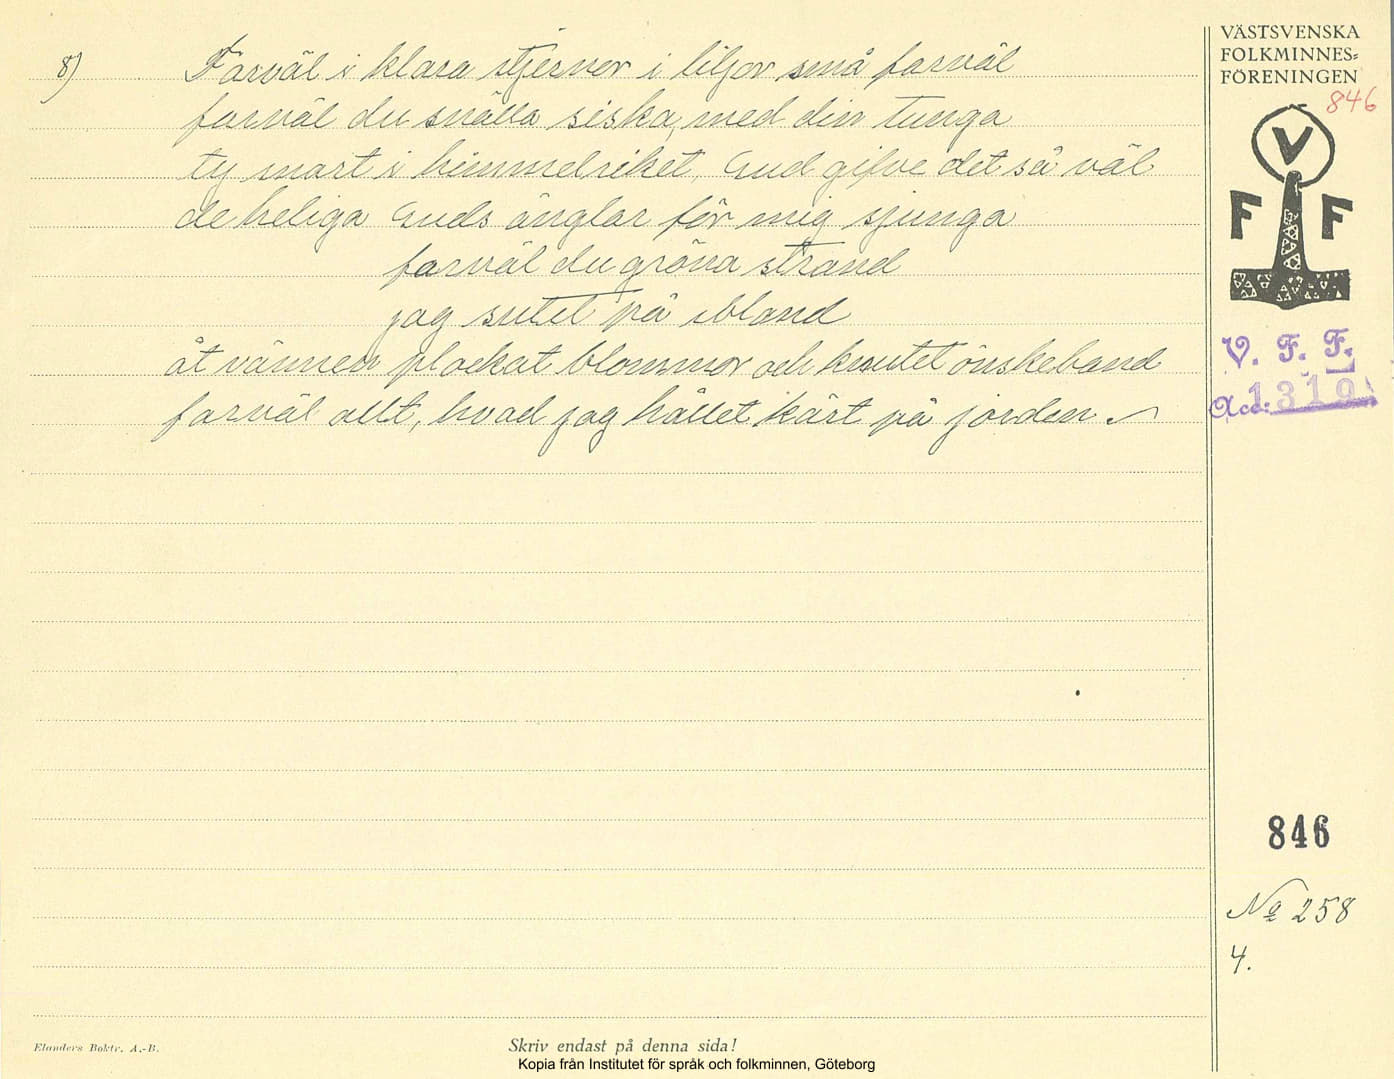 8) Farväl i klara stjernor i liljor små farväl
farväl du snälla siska, med din tunga
ty snart i himmelriket, Gud gifve det så väl
de heliga Guds änglar för mig sjunga
farväl du gröna strand
jag sutit på ibland
åt vännen plockat blommor och knutit önskeband
farväl allt, hvad jag hållet kärt på jorden
VÄSTSVENSKA
FOLKMINNES=
FÖRENINGEN
846
V
F F
V. F. F.
Acc: 1319
846
No 258
4.
Elanders Boktr. A.-B.
Skriv endast på denna sida!
Kopia från Institutet för språk och folkminnen, Göteborg